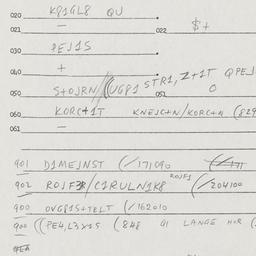 020 K81GL8 QU
021 — 022 $+
030 PEJ1S
040 +
050 S+OJRN/(UG81 STR1, Z+1T QPEJ
051 O
060 KORC+1T KNEJC+N/KORC+N (829
061 —
901 D1MEJNST (/171090
902 ROJF /C1RULN1K8 ROJF1 (/204100
900 OVG81S+TELT (/162010
900 ((PE4,L3X1S (848 G1 LANGE HOR (